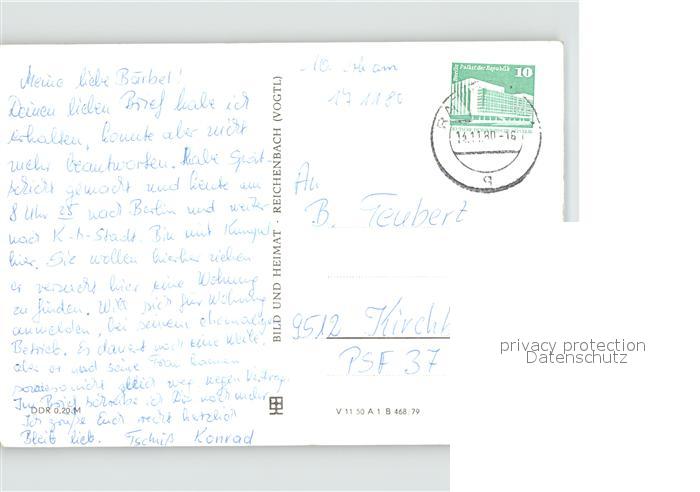 Meine liebe Bärbel!
Deinen lieben Brief habe ich
erhalten, konnte aber nicht
mehr beantworten. Habe Spät-
schicht gemacht und heute um
8 Uhr 25 nach Berlin und weiter
nach K-M-Stadt. Bin mit
hier. Sie wollen hierher ziehen
er versucht hier eine Wohnung
zu finden. Will sich für Wohnung
anmelden, bei seinem ehemaligen
Betrieb. Es dauert noch eine Weile,
aber er und seine Frau können
sowieso nicht gleich weg wegen Vertrag.
Im Brief schreibe ich Dir noch mehr
Ich grüße Euch recht herzlich
Bleib lieb. Tschüß Konrad
DDR 0,20 M
BILD UND HEIMAT · REICHENBACH (VOGTL)
V 11 50 A 1 B 468/79
10. am
17 11 80
Berlin Palast der Republik 10
14.11.80-16
An
B. Teubert
9512 Kirchh
PSF 37
privacy protection
Datenschutz